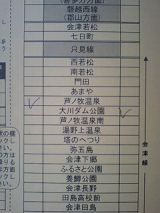 磐越西線
(郡山方面)
会津若松
七日町
只見線
西若松
南若松
門田
あまや
芦ノ牧温泉
大川ダム公園
芦ノ牧温泉南
湯野上温泉
塔のへつり
弥五島
会津下郷
ふるさと公園
養鱒公園
会津長野
田島高校前
会津田島
会津線